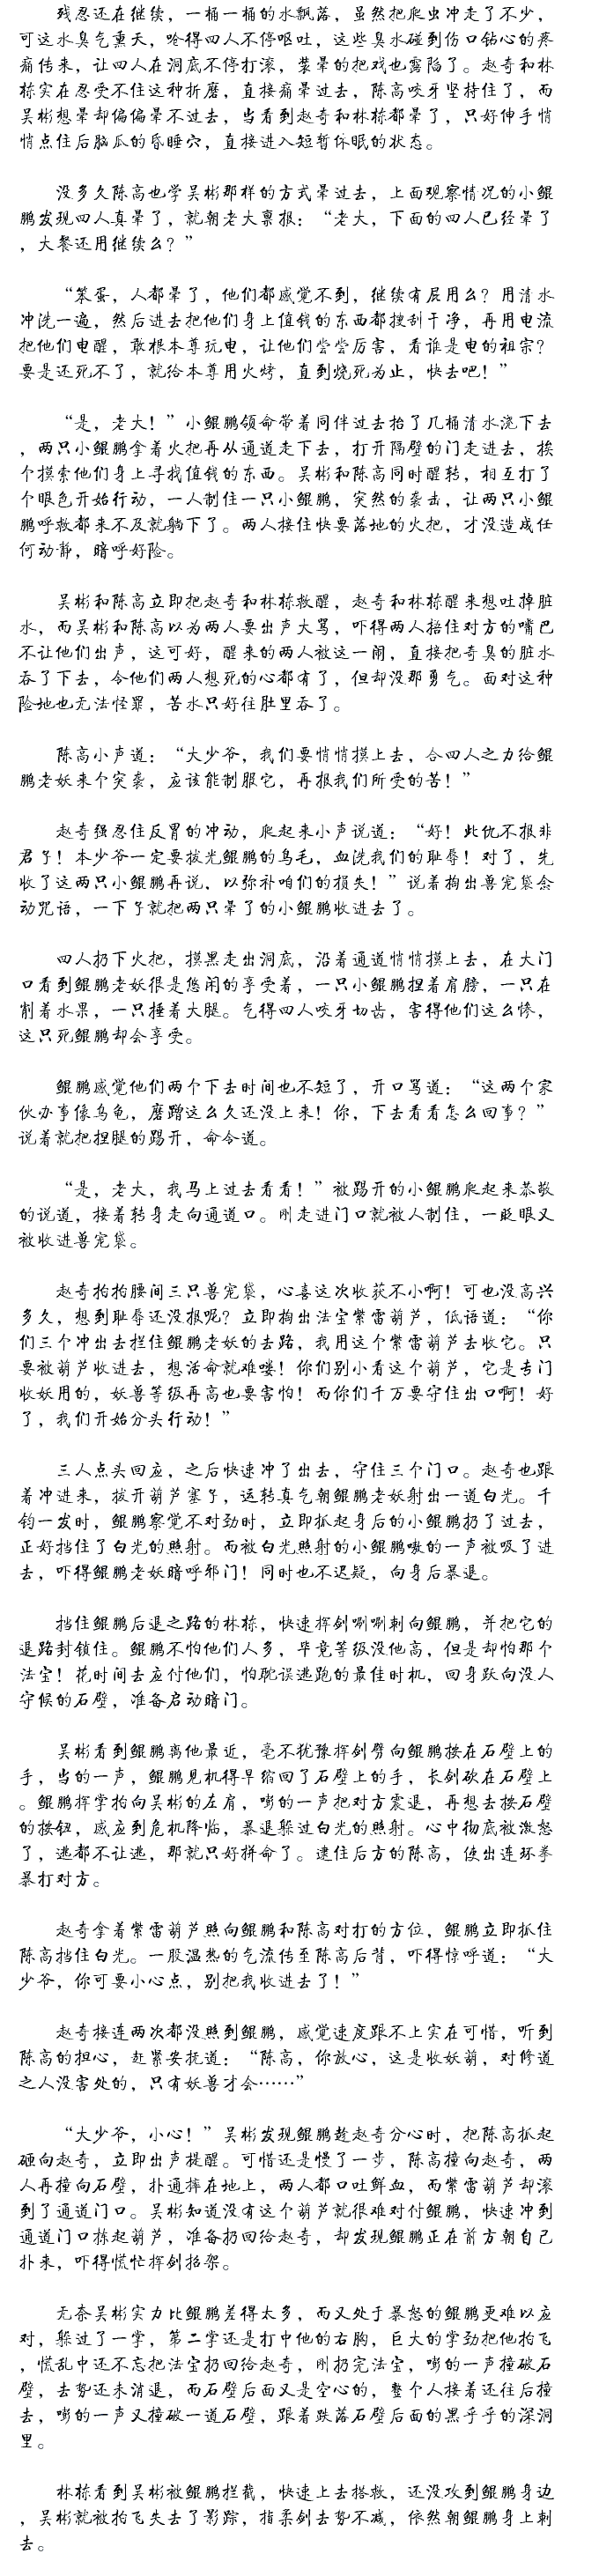 残忍还在继续，一桶一桶的水飘落，虽然把爬虫冲走了不少，
可这水臭气熏天，呛得四人不停呕吐，这些臭水碰到伤口钻心的疼
痛传来，让四人在洞底不停打滚，装晕的把戏也露陷了。赵奇和林
栋实在忍受不住这种折磨，直接痛晕过去，陈高咬牙坚持住了，而
吴彬想晕却偏偏晕不过去，当看到赵奇和林栋都晕了，只好伸手悄
悄点住后脑瓜的昏睡穴，直接进入短暂休眠的状态。
没多久陈高也学吴彬那样的方式晕过去，上面观察情况的小鲲
鹏发现四人真晕了，就朝老大禀报：“老大，下面的四人已经晕了
，大餐还用继续么？”
“笨蛋，人都晕了，他们都感觉不到，继续有屁用么？用清水
冲洗一遍，然后进去把他们身上值钱的东西都搜刮干净，再用电流
把他们电醒，敢根本尊玩电，让他们尝尝厉害，看谁是电的祖宗？
要是还死不了，就给本尊用火烤，直到烧死为止，快去吧！”
“是，老大！”小鲲鹏领命带着同伴过去抬了几桶清水浇下去
，两只小鲲鹏拿着火把再从通道走下去，打开隔壁的门走进去，挨
个摸索他们身上寻找值钱的东西。吴彬和陈高同时醒转，相互打了
个眼色开始行动，一人制住一只小鲲鹏，突然的袭击，让两只小鲲
鹏呼救都来不及就躺下了。两人接住快要落地的火把，才没造成任
何动静，暗呼好险。
吴彬和陈高立即把赵奇和林栋救醒，赵奇和林栋醒来想吐掉脏
水，而吴彬和陈高以为两人要出声大骂，吓得两人捂住对方的嘴巴
不让他们出声，这可好，醒来的两人被这一闹，直接把奇臭的脏水
吞了下去，令他们两人想死的心都有了，但却没那勇气。面对这种
险地也无法怪罪，苦水只好往肚里吞了。
陈高小声道：“大少爷，我们要悄悄摸上去，合四人之力给鲲
鹏老妖来个突袭，应该能制服它，再报我们所受的苦！”
赵奇强忍住反胃的冲动，爬起来小声说道：“好！此仇不报非
君子！本少爷一定要拔光鲲鹏的鸟毛，血洗我们的耻辱！对了，先
收了这两只小鲲鹏再说，以弥补咱们的损失！”说着掏出兽宠袋念
动咒语，一下子就把两只晕了的小鲲鹏收进去了。
四人扔下火把，摸黑走出洞底，沿着通道悄悄摸上去，在大门
口看到鲲鹏老妖很是悠闲的享受着，一只小鲲鹏捏着肩膀，一只在
削着水果，一只捶着大腿。气得四人咬牙切齿，害得他们这么惨，
这只死鲲鹏却会享受。
鲲鹏感觉他们两个下去时间也不短了，开口骂道：“这两个家
伙办事像乌龟，磨蹭这么久还没上来！你，下去看看怎么回事？”
说着就把捏腿的踢开，命令道。
“是，老大，我马上过去看看！”被踢开的小鲲鹏爬起来恭敬
的说道，接着转身走向通道口。刚走进门口就被人制住，一眨眼又
被收进兽宠袋。
赵奇拍拍腰间三只兽宠袋，心喜这次收获不小啊！可也没高兴
多久，想到耻辱还没报呢？立即掏出法宝紫雷葫芦，低语道：“你
们三个冲出去拦住鲲鹏老妖的去路，我用这个紫雷葫芦去收它。只
要被葫芦收进去，想活命就难喽！你们别小看这个葫芦，它是专门
收妖用的，妖兽等级再高也要害怕！而你们千万要守住出口啊！好
了，我们开始分头行动！”
三人点头回应，之后快速冲了出去，守住三个门口。赵奇也跟
着冲进来，拔开葫芦塞子，运转真气朝鲲鹏老妖射出一道白光。千
钧一发时，鲲鹏察觉不对劲时，立即抓起身后的小鲲鹏扔了过去，
正好挡住了白光的照射。而被白光照射的小鲲鹏嗷的一声被吸了进
去，吓得鲲鹏老妖暗呼邪门！同时也不迟疑，向身后暴退。
挡住鲲鹏后退之路的林栋，快速挥剑唰唰刺向鲲鹏，并把它的
退路封锁住。鲲鹏不怕他们人多，毕竟等级没他高，但是却怕那个
法宝！花时间去应付他们，怕耽误逃跑的最佳时机，回身跃向没人
守候的石壁，准备启动暗门。
吴彬看到鲲鹏离他最近，毫不犹豫挥剑劈向鲲鹏按在石壁上的
手，当的一声，鲲鹏见机得早缩回了石壁上的手，长剑砍在石壁上
。鲲鹏挥掌拍向吴彬的左肩，嘭的一声把对方震退，再想去按石壁
的按钮，感应到危机降临，暴退躲过白光的照射。心中彻底被激怒
了，逃都不让逃，那就只好拼命了。逮住后方的陈高，使出连环拳
暴打对方。
赵奇拿着紫雷葫芦照向鲲鹏和陈高对打的方位，鲲鹏立即抓住
陈高挡住白光。一股温热的气流传至陈高后背，吓得惊呼道：“大
少爷，你可要小心点，别把我收进去了！”
赵奇接连两次都没照到鲲鹏，感觉速度跟不上实在可惜，听到
陈高的担心，赶紧安抚道：“陈高，你放心，这是收妖葫，对修道
之人没害处的，只有妖兽才会……”
“大少爷，小心！”吴彬发现鲲鹏趁赵奇分心时，把陈高抓起
砸向赵奇，立即出声提醒。可惜还是慢了一步，陈高撞向赵奇，两
人再撞向石壁，扑通摔在地上，两人都口吐鲜血，而紫雷葫芦却滚
到了通道门口。吴彬知道没有这个葫芦就很难对付鲲鹏，快速冲到
通道门口拣起葫芦，准备扔回给赵奇，却发现鲲鹏正在前方朝自己
扑来，吓得慌忙挥剑招架。
无奈吴彬实力比鲲鹏差得太多，而又处于暴怒的鲲鹏更难以应
对，躲过了一掌，第二掌还是打中他的右胸，巨大的掌劲把他拍飞
，慌乱中还不忘把法宝扔回给赵奇，刚扔完法宝，嘭的一声撞破石
壁，去势还未消退，而石壁后面又是空心的，整个人接着还往后撞
去，嘭的一声又撞破一道石壁，跟着跌落石壁后面的黑乎乎的深洞
里。
林栋看到吴彬被鲲鹏拦截，快速上去搭救，还没攻到鲲鹏身边
，吴彬就被拍飞失去了影踪，指柔剑去势不减，依然朝鲲鹏身上刺
去。